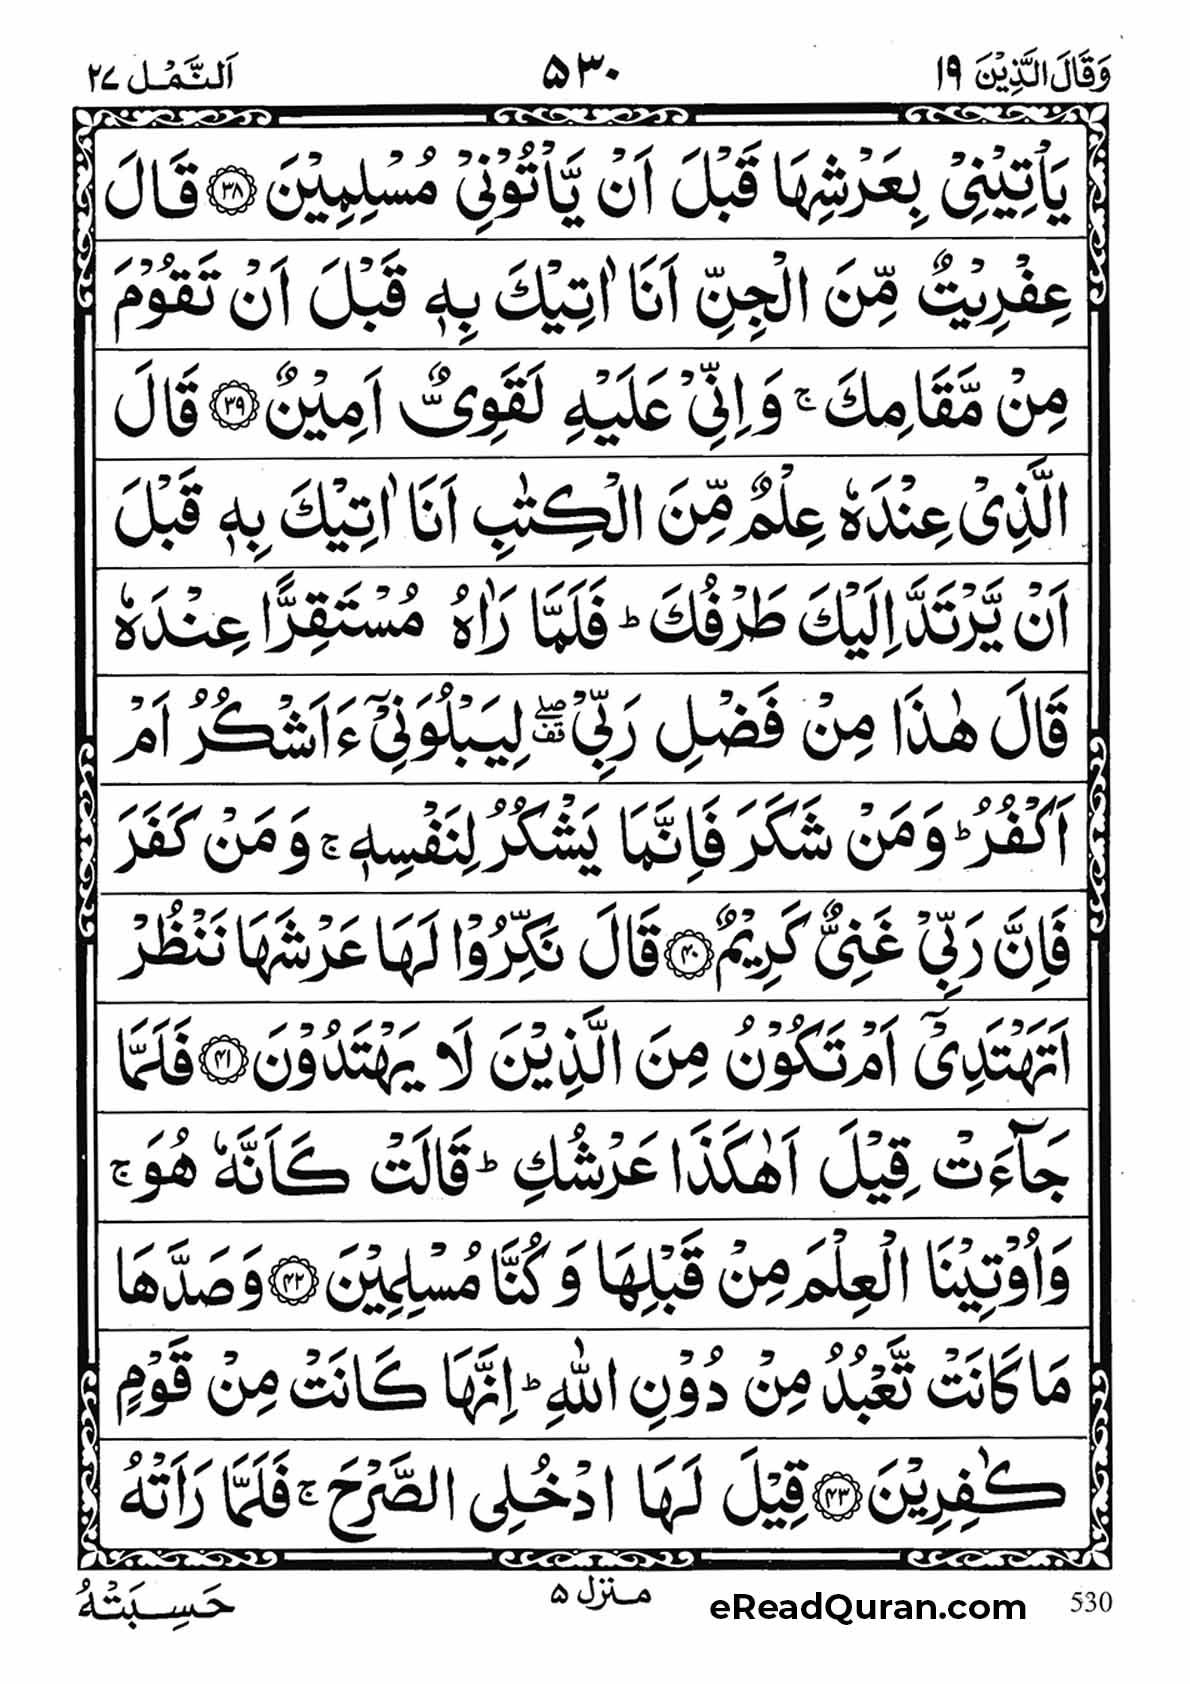 وَقَالَ الَّذِيْنَ ١٩ ٥٣٠ اَلنَّمْل ٢٧
يَاْتِيْنِىْ بِعَرْشِهَا قَبْلَ اَنْ يَّاْتُوْنِىْ مُسْلِمِيْنَ ﴿٣٨﴾ قَالَ
عِفْرِيْتٌ مِّنَ الْجِنِّ اَنَا اٰتِيْكَ بِهٖ قَبْلَ اَنْ تَقُوْمَ
مِنْ مَّقَامِكَ ۚ وَاِنِّىْ عَلَيْهِ لَقَوِىٌّ اَمِيْنٌ ﴿٣٩﴾ قَالَ
الَّذِىْ عِنْدَهٗ عِلْمٌ مِّنَ الْكِتٰبِ اَنَا اٰتِيْكَ بِهٖ قَبْلَ
اَنْ يَّرْتَدَّ اِلَيْكَ طَرْفُكَ ؕ فَلَمَّا رَاٰهُ مُسْتَقِرًّا عِنْدَهٗ
قَالَ هٰذَا مِنْ فَضْلِ رَبِّىْ ۖقف لِيَبْلُوَنِىْٓ ءَاَشْكُرُ اَمْ
اَكْفُرُ ؕ وَمَنْ شَكَرَ فَاِنَّمَا يَشْكُرُ لِنَفْسِهٖ ۚ وَمَنْ كَفَرَ
فَاِنَّ رَبِّىْ غَنِىٌّ كَرِيْمٌ ﴿٤٠﴾ قَالَ نَكِّرُوْا لَهَا عَرْشَهَا نَنْظُرْ
اَتَهْتَدِىْٓ اَمْ تَكُوْنُ مِنَ الَّذِيْنَ لَا يَهْتَدُوْنَ ﴿٤١﴾ فَلَمَّا
جَآءَتْ قِيْلَ اَهٰكَذَا عَرْشُكِ ؕ قَالَتْ كَاَنَّهٗ هُوَ ۚ
وَاُوْتِيْنَا الْعِلْمَ مِنْ قَبْلِهَا وَكُنَّا مُسْلِمِيْنَ ﴿٤٢﴾ وَصَدَّهَا
مَا كَانَتْ تَّعْبُدُ مِنْ دُوْنِ اللّٰهِ ؕ اِنَّهَا كَانَتْ مِنْ قَوْمٍ
كٰفِرِيْنَ ﴿٤٣﴾ قِيْلَ لَهَا ادْخُلِى الصَّرْحَ ۚ فَلَمَّا رَاَتْهُ
حَسِبَتْهُ منزل ٥ eReadQuran.com 530